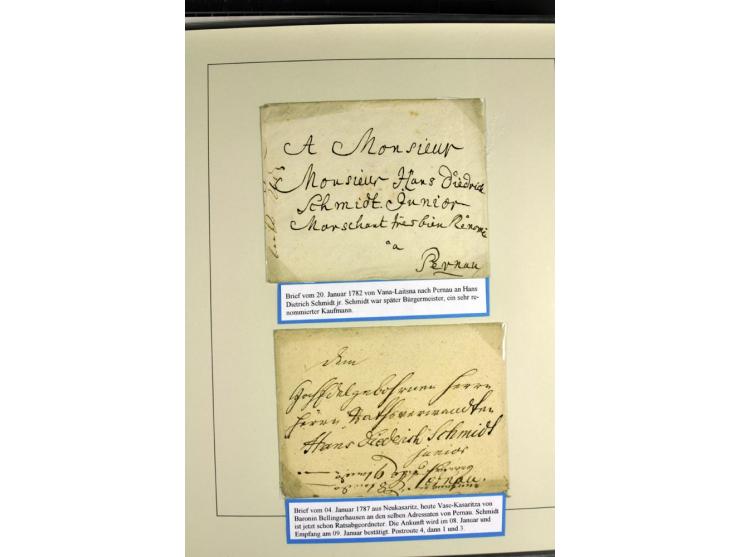 A Monsieur
Monsieur Hans Diedrich
Schmidt Junior
Marchant tres bien Renomé
a
Pernau
Brief vom 20. Januar 1782 von Vana-Laitsna nach Pernau an Hans
Dietrich Schmidt jr. Schmidt war später Bürgermeister, ein sehr re-
nommierter Kaufmann.
dem
Hochedelgebohrnen Herrn
Herrn Rathsverwandten
Hans Diederich Schmidt
junior
Pernau.
Brief vom 04. Januar 1787 aus Neukasaritz, heute Vase-Kasaritza von
Baronin Bellingerhausen an den selben Adressaten von Pernau. Schmidt
ist jetzt schon Ratsabgeordneter. Die Ankunft wird im 08. Januar und
Empfang am 09. Januar bestätigt. Postroute 4, dann 1 und 3.